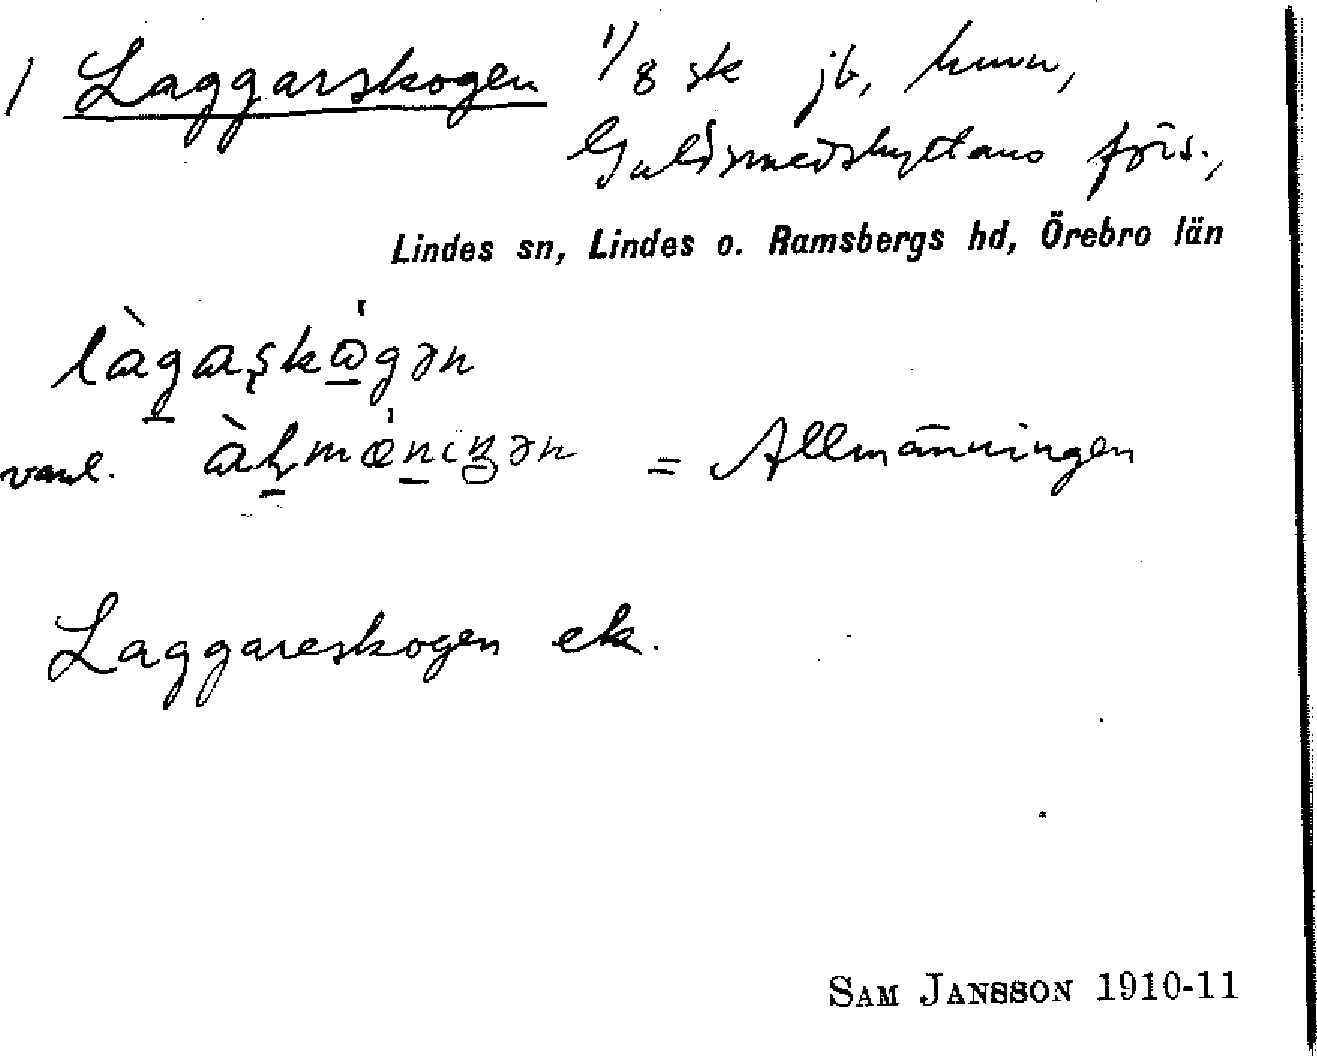 1 Laggarskogen 1/8 sk jb,
Guldsmedshyttans förs.,
Lindes sn, Lindes o. Ramsbergs hd, Örebro län
vanl. = Allmänningen
Laggareskogen ek.
SAM JANSSON 1910-11